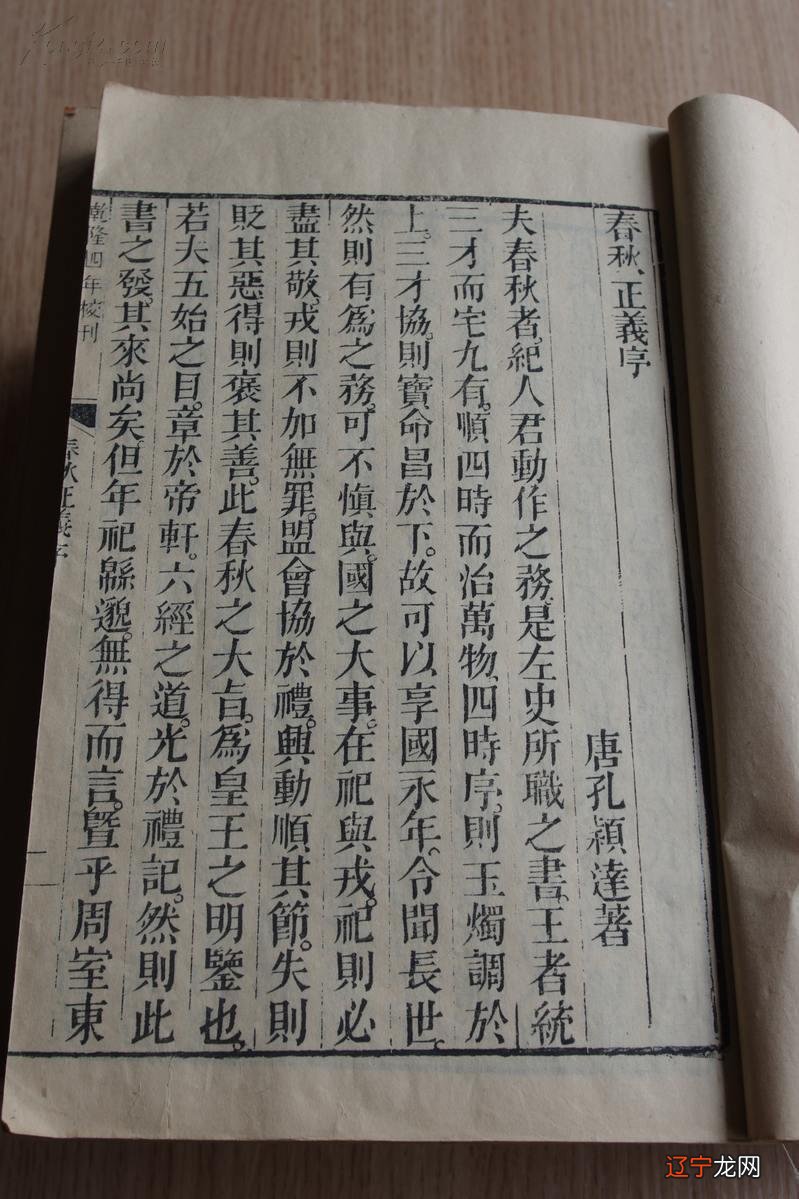 春秋正義序
唐孔穎達著
夫春秋者。紀人君動作之務。是左史所職之書。王者統
三才而宅九有。順四時而治萬物。四時序。則玉燭調於
上。三才協。則寶命昌於下。故可以享國永年。令聞長世。
然則有爲之務。可不慎與。國之大事。在祀與戎。祀則必
盡其敬。戎則不加無罪。盟會協於禮。興動順其節。失則
貶其惡。得則褒其善。此春秋之大旨。爲皇王之明鑒也。
若夫五始之目。章於帝軒。六經之道。光於禮記。然則此
書之發。其來尚矣。但年祀緜邈。無得而言。暨乎周室東
乾隆四年校刊
春秋正義序
辽宁龙网